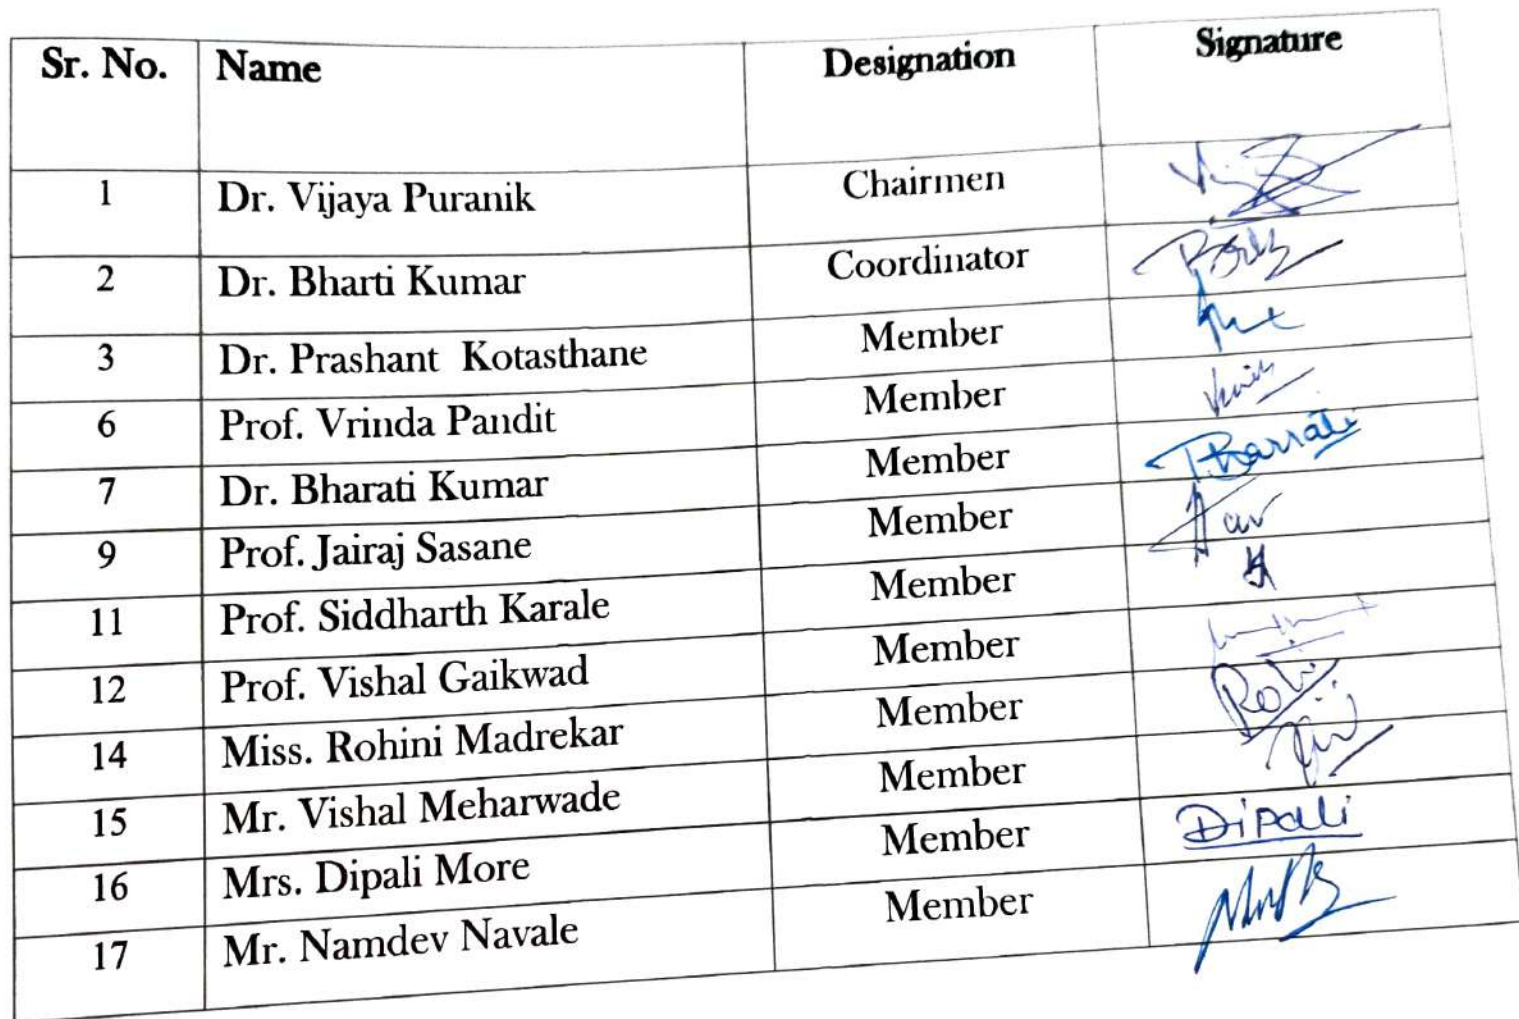 Sr. No. Name Designation Signature
1 Dr. Vijaya Puranik Chairmen
2 Dr. Bharti Kumar Coordinator
3 Dr. Prashant Kotasthane Member
6 Prof. Vrinda Pandit Member
7 Dr. Bharati Kumar Member
9 Prof. Jairaj Sasane Member
11 Prof. Siddharth Karale Member
12 Prof. Vishal Gaikwad Member
14 Miss. Rohini Madrekar Member
15 Mr. Vishal Meharwade Member
16 Mrs. Dipali More Member Dipali
17 Mr. Namdev Navale Member